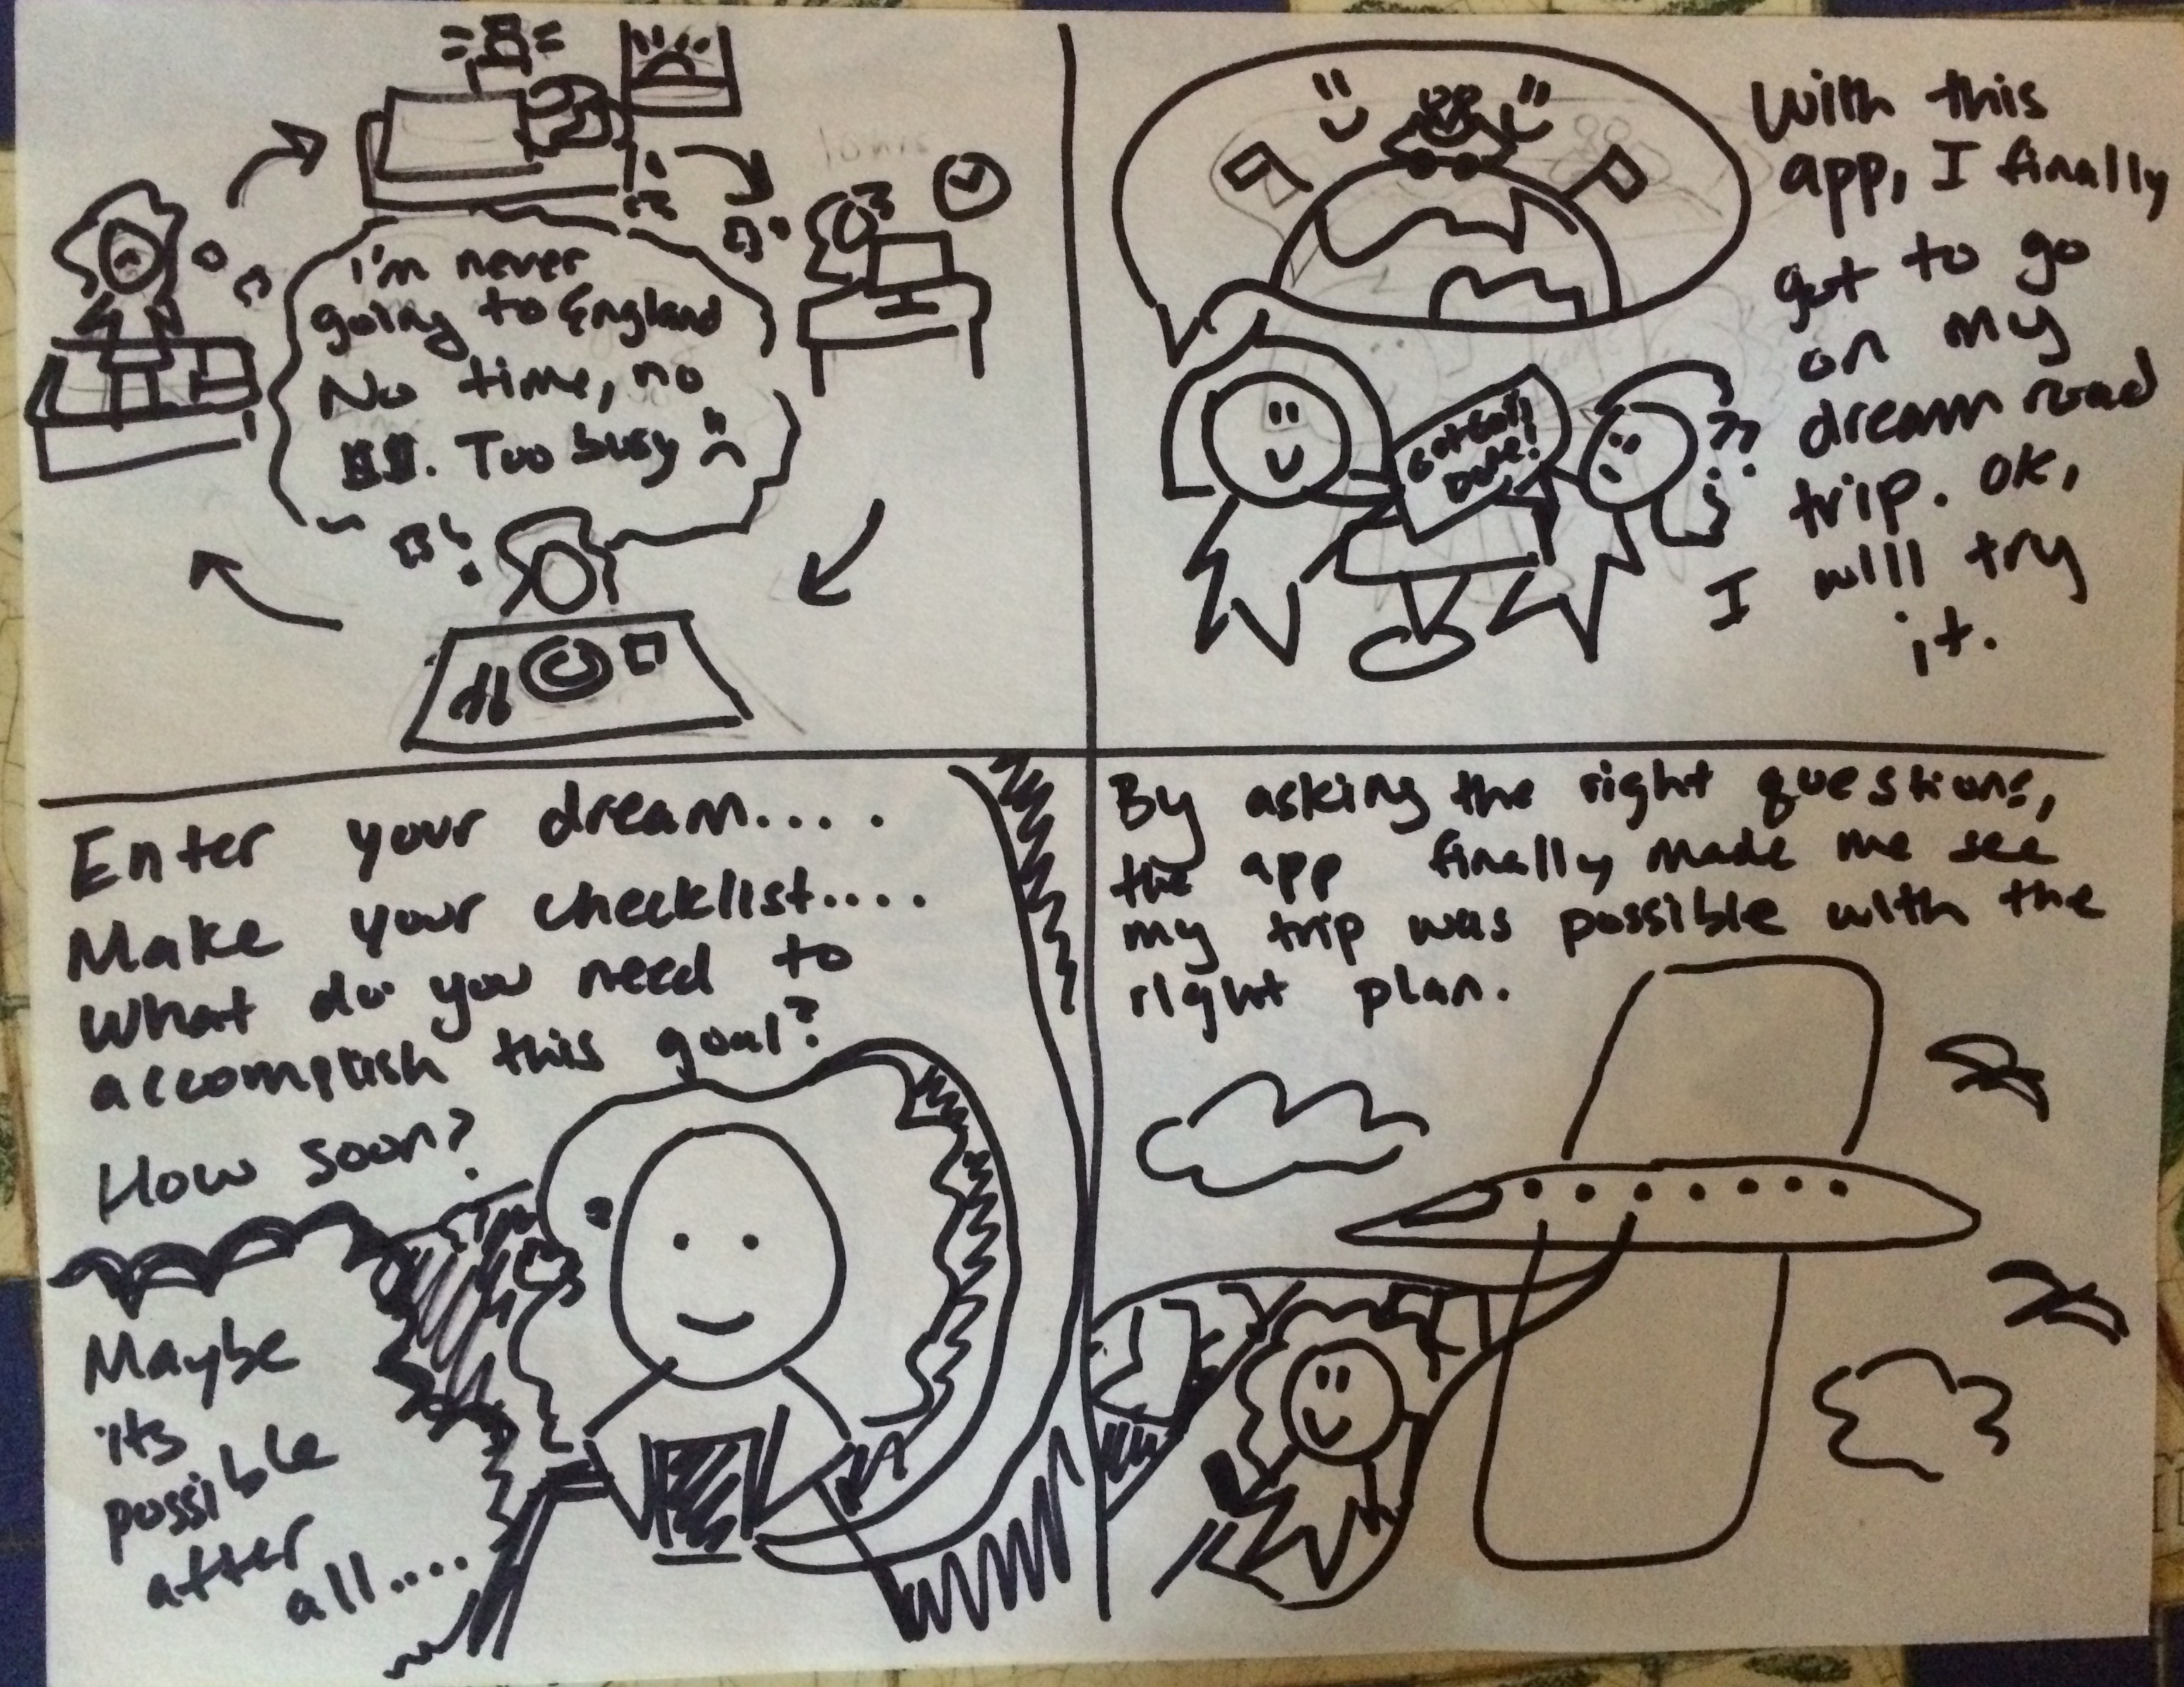 I'm never
going to England
No time, no
$$. Too busy
With this
app, I finally
got to go
on my
dream road
trip. OK,
I will try
it.
Enter your dream....
Make your checklist....
What do you need to
accomplish this goal?
How soon?
Maybe
its
possible
after
all....
By asking the right questions,
the app finally made me see
my trip was possible with the
right plan.